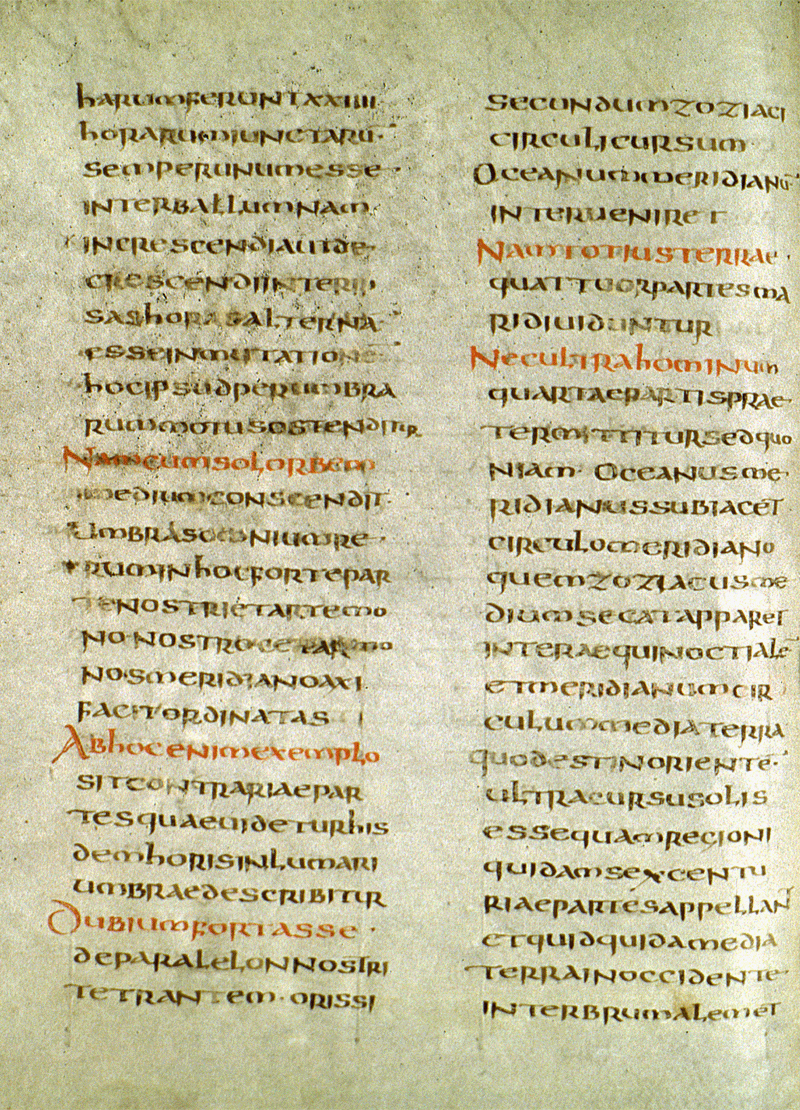 harum ferunt xxiiii
horarum iunctaru
semper unum esse
interballum nam
increscendi aut de
crescendi inter
sas horas alterna
esse inmutatione
hoc ipsud per umbra
rum motus ostenditur
Nam cum sol orbem
medium conscendit
umbras omnium re
rum in hoc forte par
te nostri et arte mo
no nostro
nos meridiano axi
facit ordinatas
Ab hoc enim exemplo
sit contrariae par
tes quae uidetur his
dem horis in lumari
umbrae describitur
Dubium fortasse
de paralelon nostri
te trantem orissi
secundum zoziaci
circuli cursum
Oceanum meridianu
interuenire
Nam totius terrae
quattuor partes ma
ri diuiduntur
Nec ultra hominum
quartae partis prae
termittitur sed quo
niam Oceanus me
ridianus subiacet
circulo meridiano
quem zoziacus me
dium secat apparet
inter aequinoctiale
et meridianum cir
culum media terra
quod est in oriente
ultra cursu solis
esse quam regioni
quidam sexcentu
riae partes appellan
et quidquid a media
terra in occidente
inter brumalem et